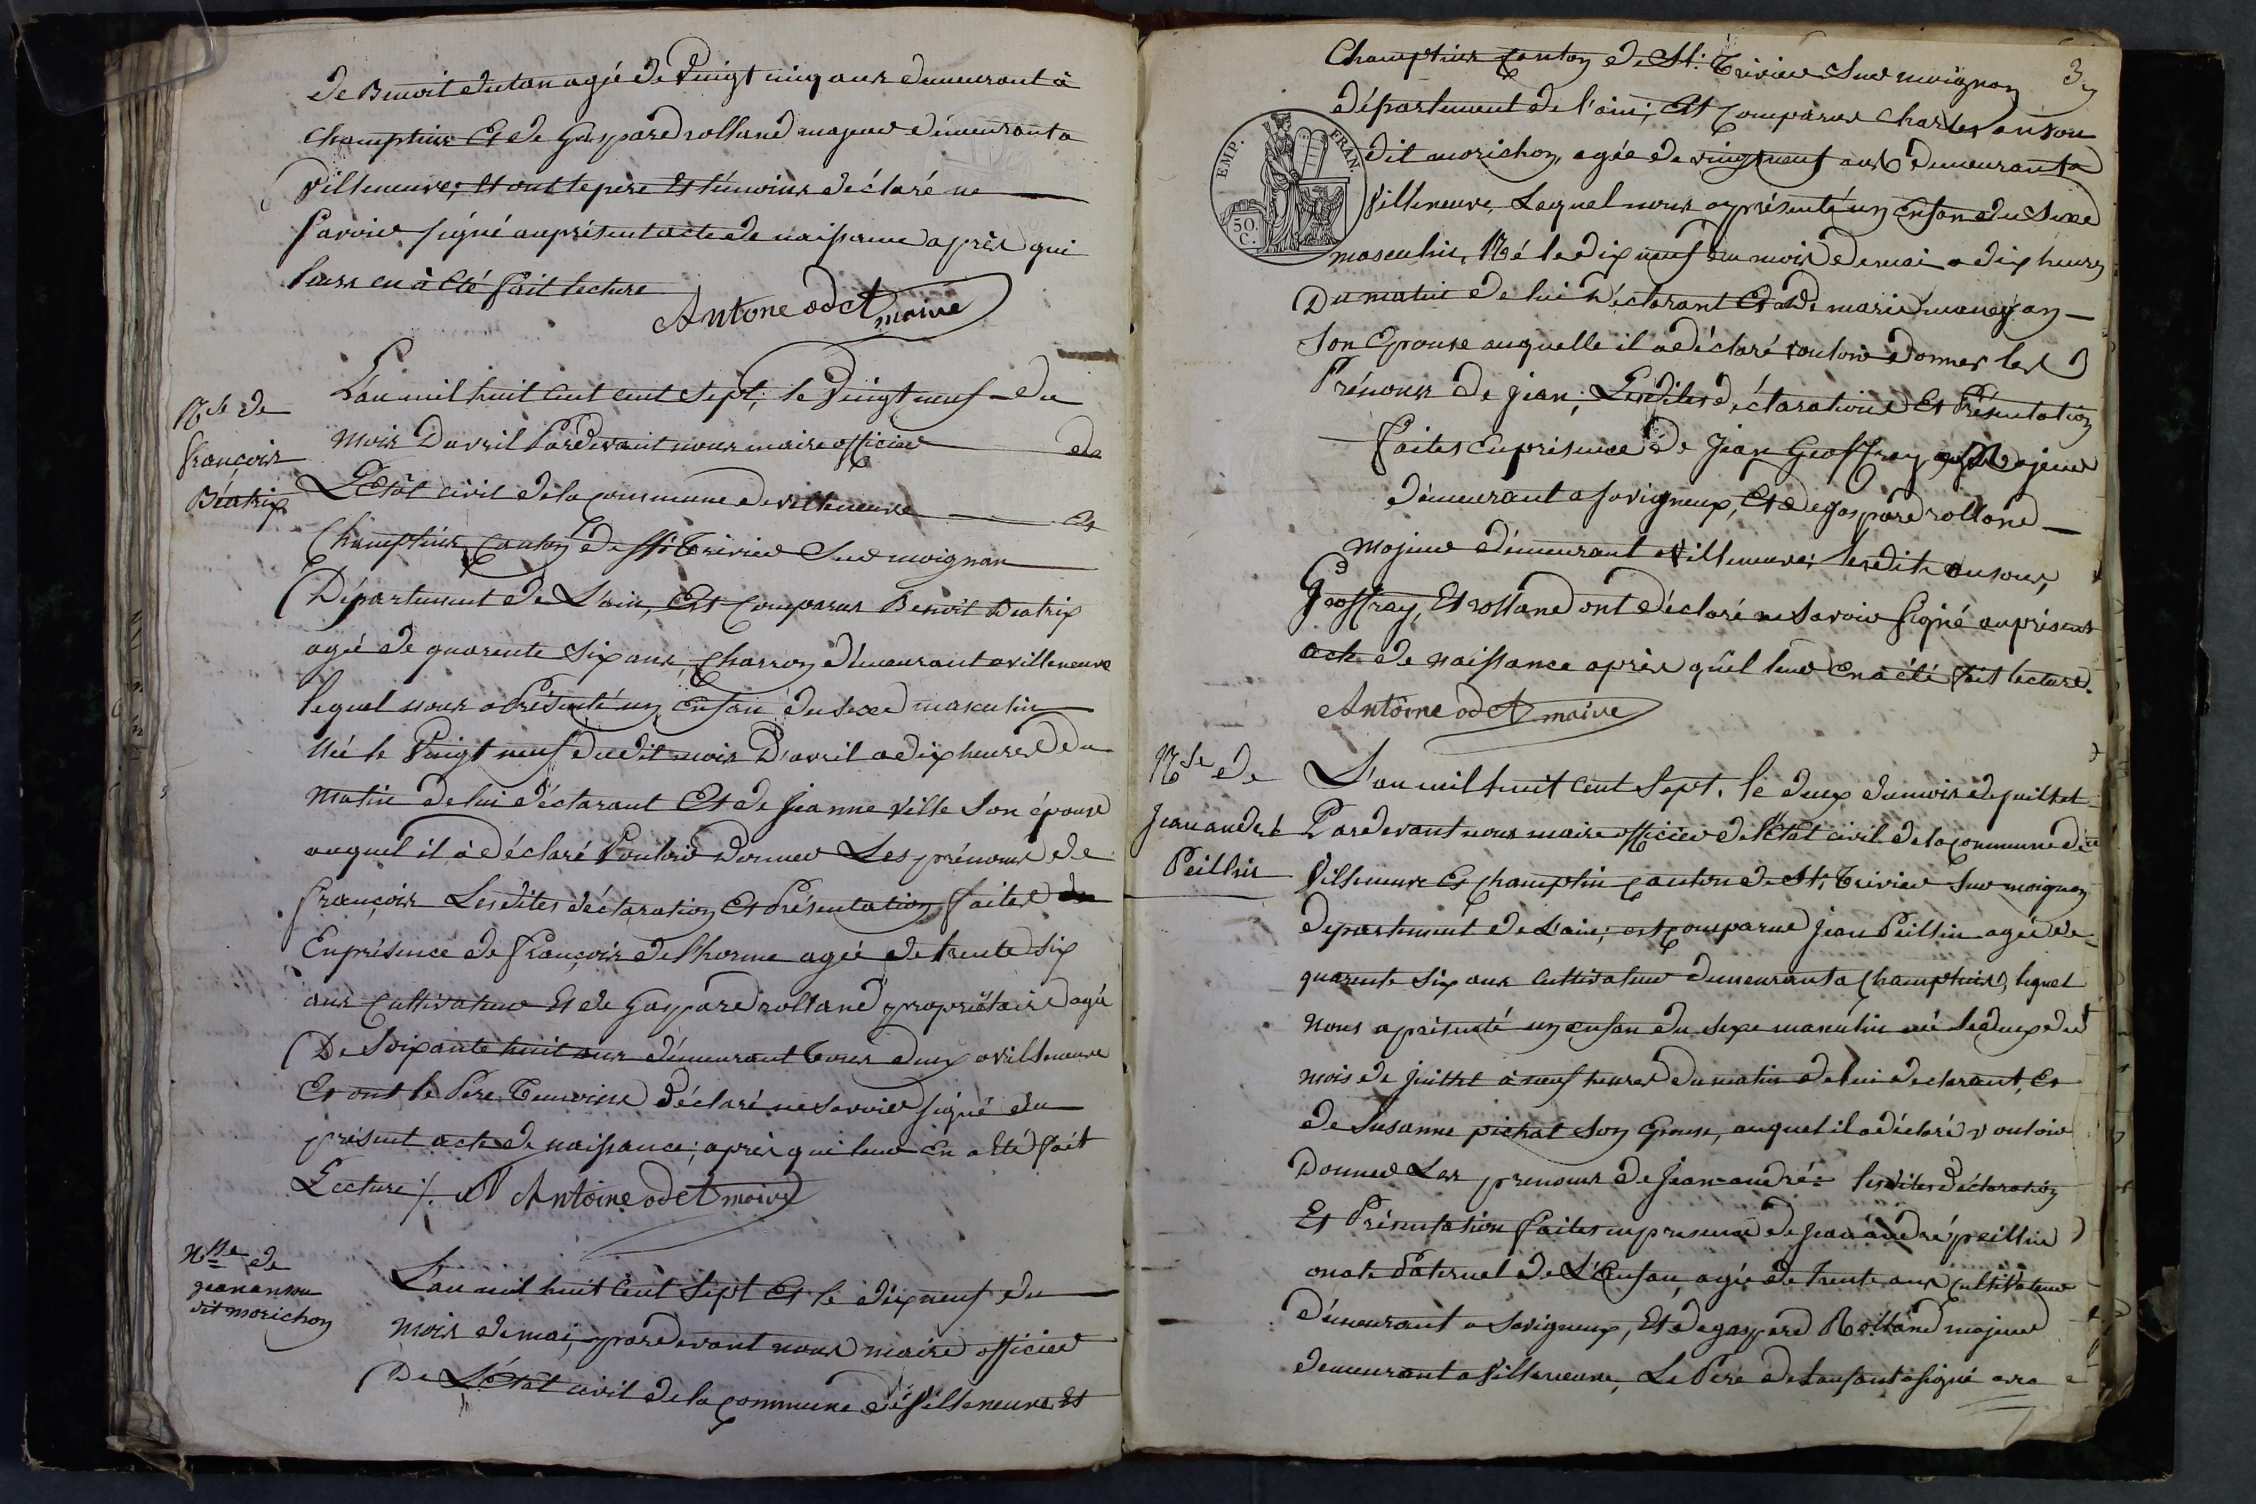 de Benoit dutan agé de Vingt cinq ans demeurant à
Champtins Et de Gaspard rolland majeur demeurant a
Villeneuve; Et ont le pere Et témoins déclaré ne
Savoir signé au présent acte de naissance après qui
leurs en à Eté fait lecture
Antone odet maire
N.ce de
françois
Béatrix
L'an mil huit cent cent sept, le Vingt neuf du
mois D'avril Pardevant nous maire officier de
L'Etât civil de la commune de villeneuve Et
Champtins, Canton de St. Trivier Sur moignan
Département de L'ain, Est comparus Benoit Beatrix
agé de quarente Six ans, Charron demeurant a villeneuve
lequel nous a Présenté un enfan du sexe masculin
Né le Vingt neuf dudit mois D'avril a dix heures du
matin de lui déclarant Et de Jeanne Ville Son épouse
auquel il a déclaré Vouloir donner Les prénoms de
françois Lesdites déclaration Et Présentation faites
En présence de François delhorme agé de trente six
ans Cultivateur Et de Gaspard rolland propriétaire agé
De Soixante huit ans demeurant tous deux a villeneuve
Et ont le Père Temoins déclaré ne savoir signé du
présent acte de naissance; après qui leur en a Eté fait
Lecture ./. Antoine odet maire
N.ce de
jean ansou
dit morichon
L'an mil huit Cent Sept Et le dix neuf du
mois de mai, par devant nous maire officier
De L'état civil de la commune de Villeneuve Et
3
Champtins Canton de St. Trivier Sur moignan
département de l'ain; Est comparus Charles ansou
dit morichon, agée de vingt neuf ans demeurant a
Villeneuve, Lequel nous a présenté un Enfan du Sexe
masculin, Né le dix neuf du mois de mai a dix heures
Du matin de lui déclarant Et de marie
Son Epouse auquelle il a déclaré vouloir donner les
Prénoms de jean; Lesdites déclarations Et Présentation
faites en présence de Jean Geoffray majeur
demeurant a savigneux, Et de gaspard rolland
majeur demeurant a Villeneuve; lesdits ansou,
Geoffray, Et rolland ont déclaré ne savoir signé au présent
acte de naissance après qu'il leur en a été fait lecture.
Antoine odet maire
EMP. FRAN.
50.
C.
N.ce de
Jean andré
Peillin
L'an mil huit Cent Sept, le deux du mois de juillet
Pardevant nous maire officier de l'état civil de la commune de
Villeneuve Et Champtin canton de St. Trivier Sur moignan
departement de L'ain, est comparue Jean Peillin agé de
quarente Six ans Cultivateur demeurant a Champtins, lequel
nous a présenté un enfan du sexe masculin né le deux dud
mois de juillet à neuf heures du matin de lui declarant, Et
de Susanne pichat Son Epouse, auquel il a déclaré vouloir
Donner Les prenoms de Jean-andré: lesdites déclaration
Et Présentation faites en presence de Jean andré peillin
oncle Paternel de L'Enfan, agé de trente ans Cultivateur
demeurant a Savigneux, Et de gaspard Rolland majeur
demeurant a Villeneuve, Le Père de Lanfant a signé avec